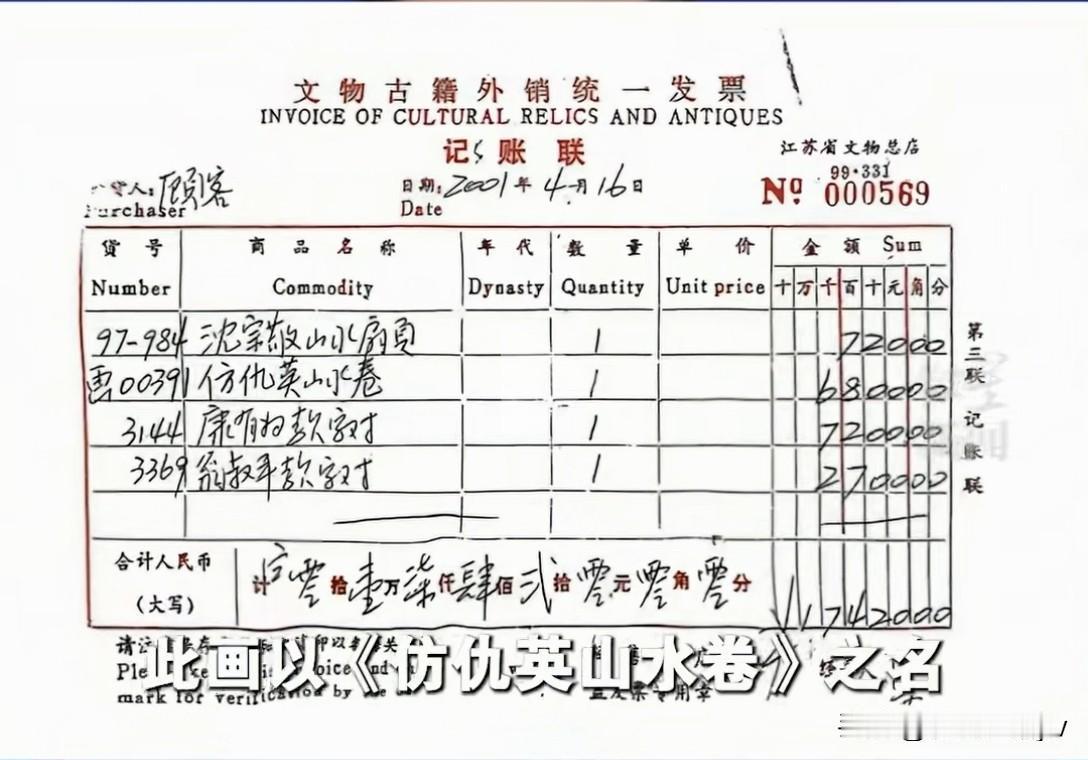 文物古籍外销统一发票
INVOICE OF CULTURAL RELICS AND ANTIQUES
记账联
江苏省文物总店
99·331
货人：顾客
日期：2001年4月16日
Nº 000569
Purchaser
Date
货号 商品名称 年代 数量 单价 金额 Sum
Number Commodity Dynasty Quantity Unit price 十万千百十元角分
97-984 沈宗敬山水扇页 1 72000
00391 仿仇英山水卷 1 680000
3144 康有为款字对 1 720000
3369 翁叔平款字对 1 270000
第三联 记账联
合计人民币
（大写）
计 零拾壹万柒仟肆佰贰拾零元零角零分
1742000
此画以《仿仇英山水卷》之名
mark for verification by the